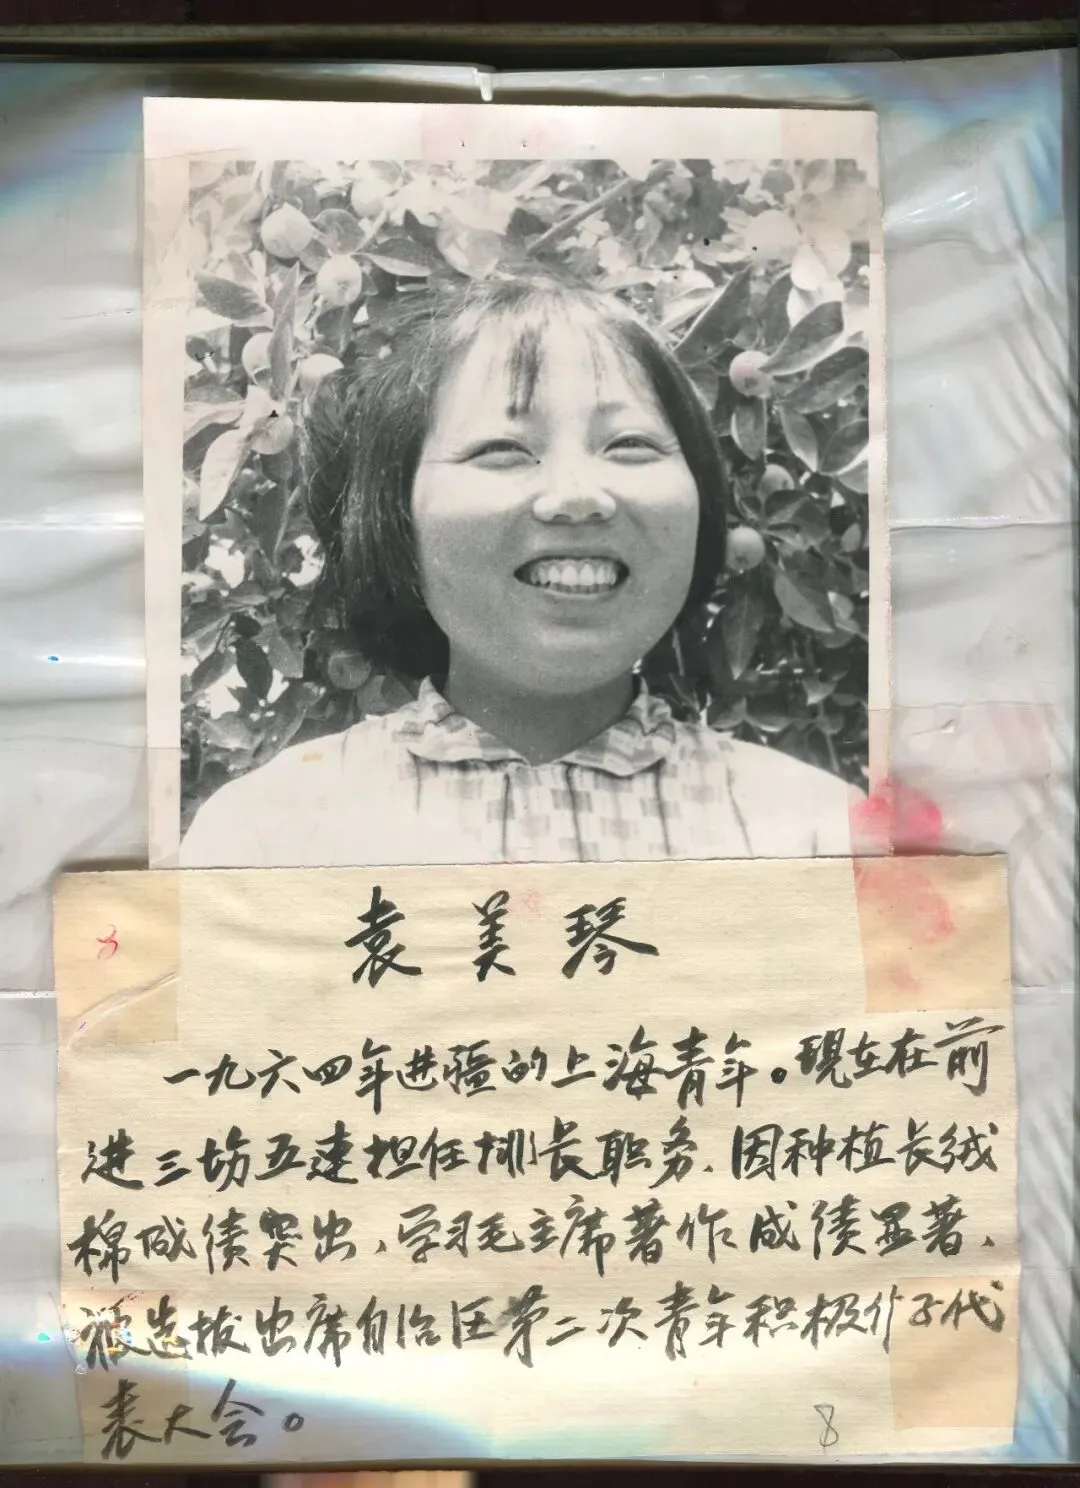 袁美琴
一九六四年进疆的上海青年。现在在前
进三场五连担任排长职务、因种植长绒
棉成绩突出、学习毛主席著作成绩显著、
被选拔出席自治区第二次青年积极分子代
表大会。
8